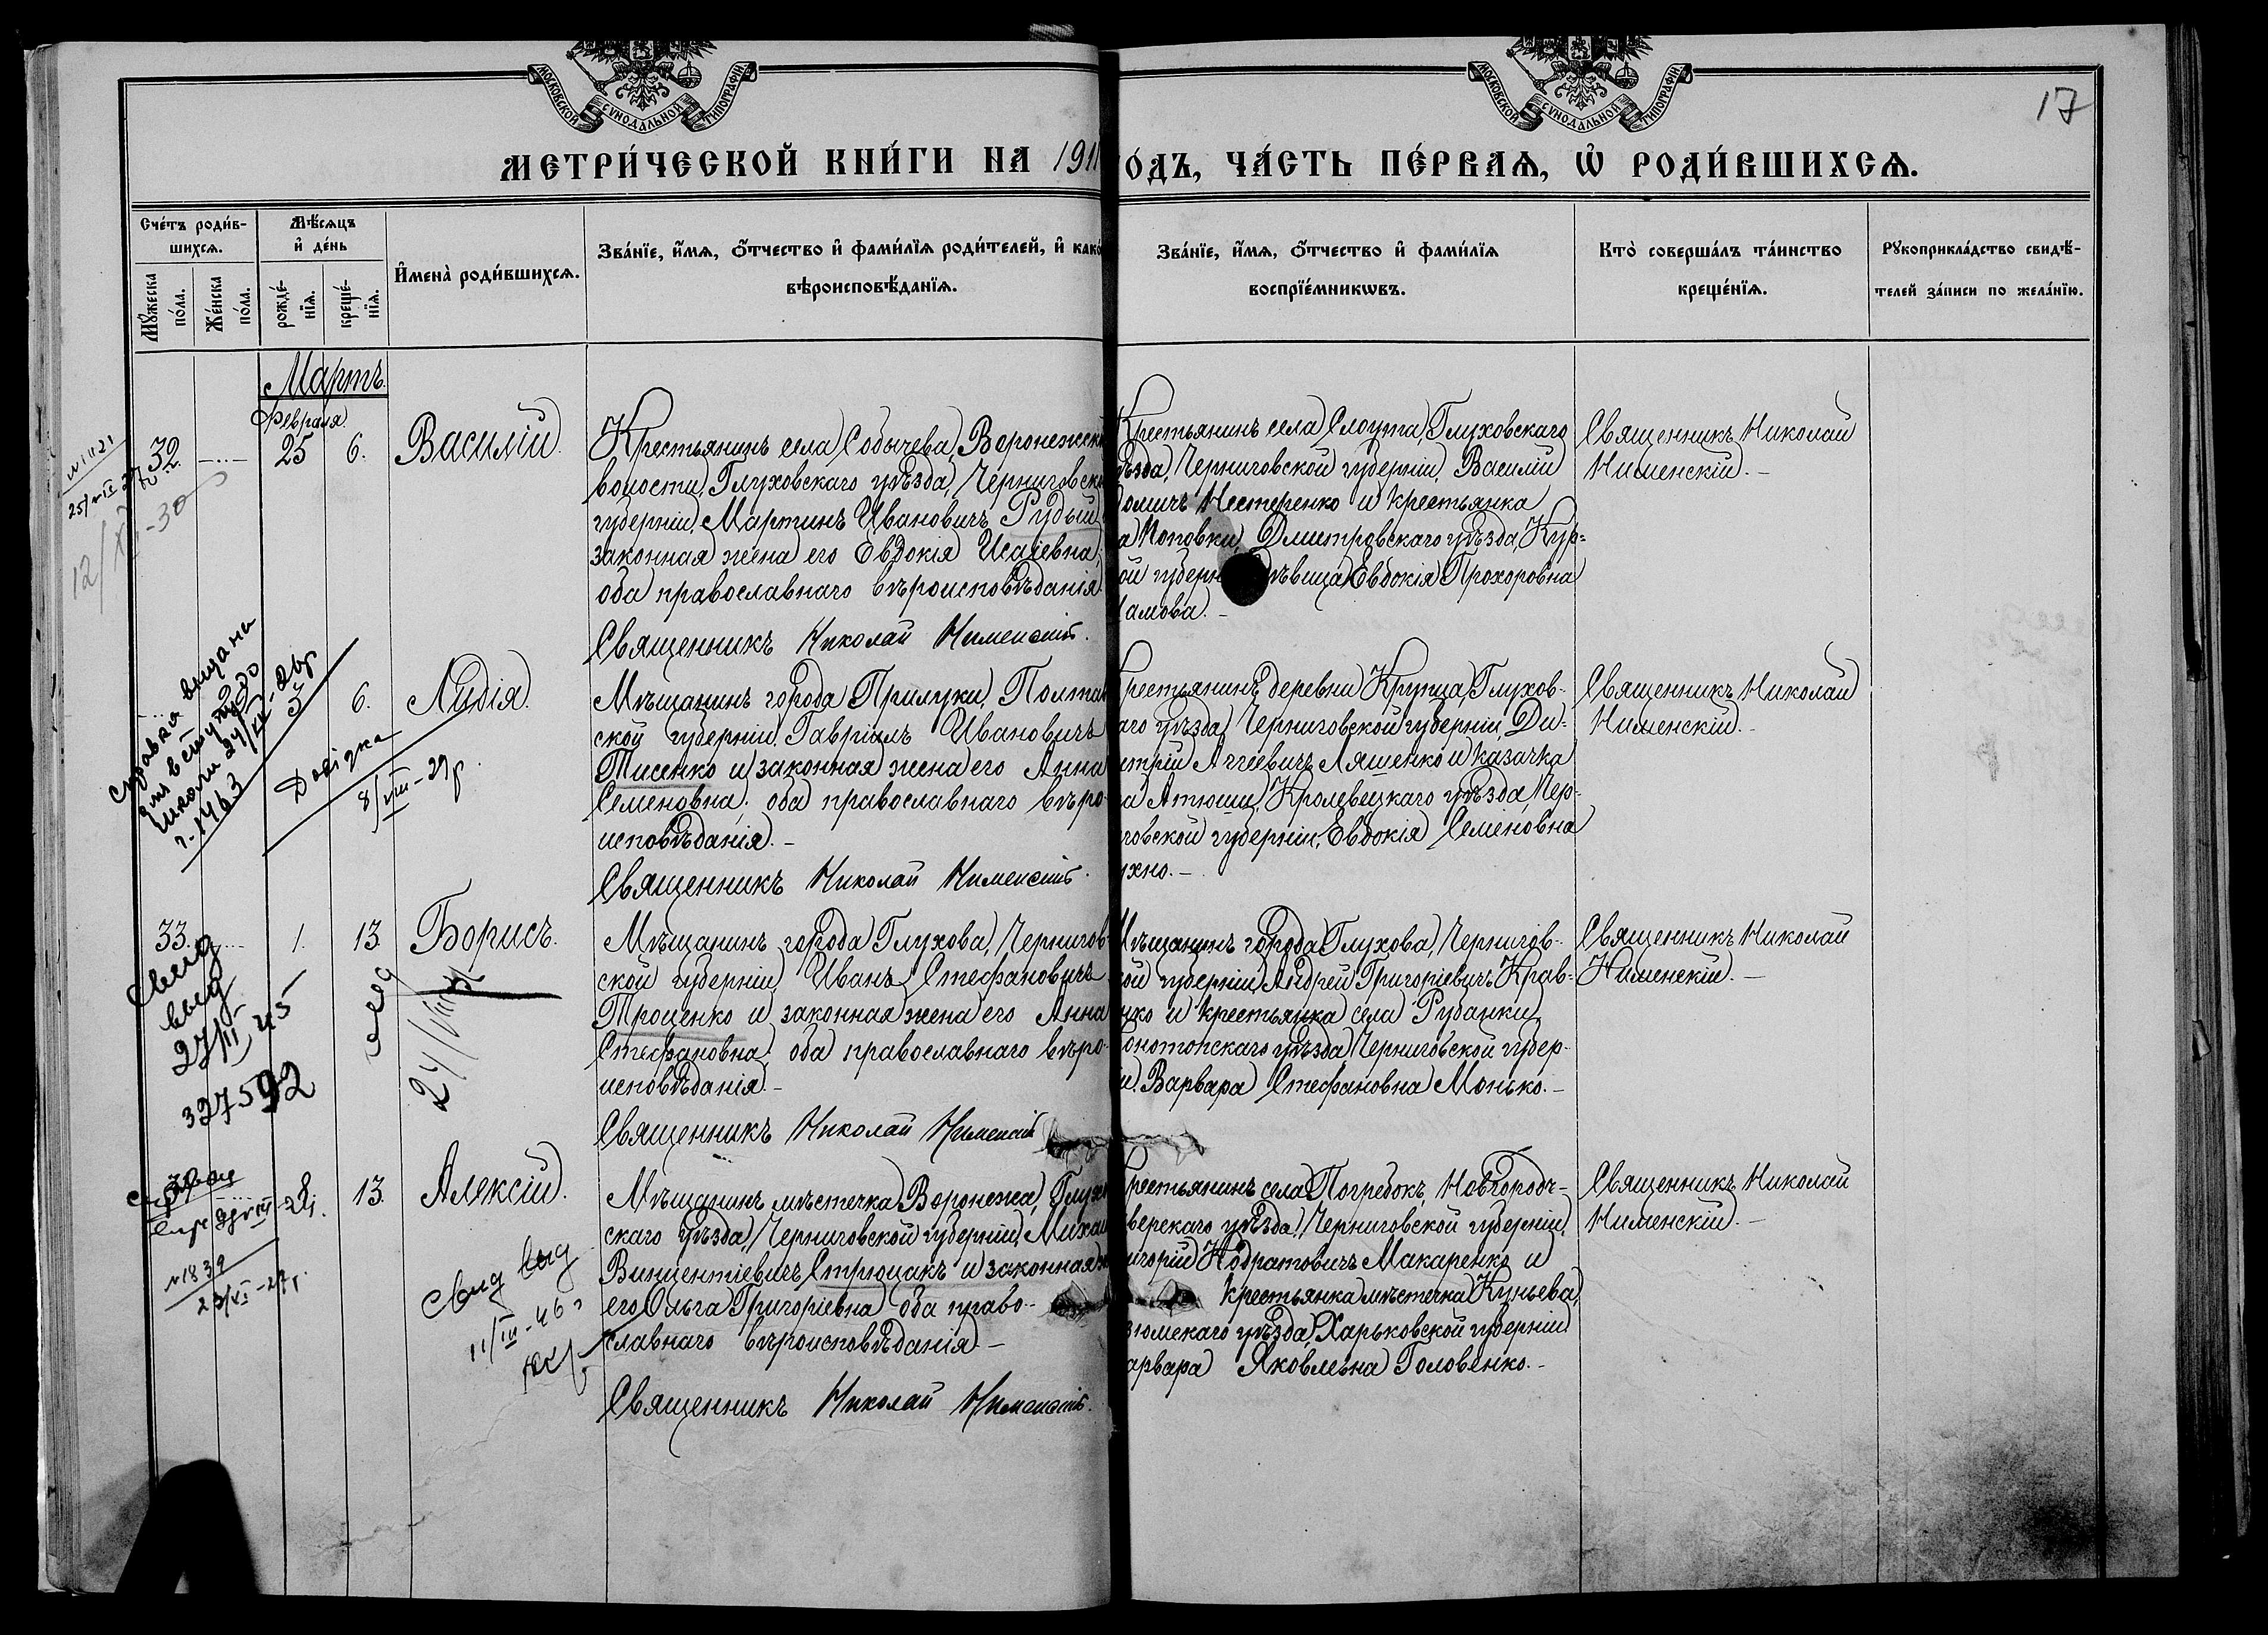 МОСКОВСКОЙ СѴНОДАЛЬНОЙ ТИПОГРАФІИ
МОСКОВСКОЙ СѴНОДАЛЬНОЙ ТИПОГРАФІИ
17
МЕТРИ́ЧЕСКОЙ КНИ́ГИ НА 191
О́ДЪ, ЧА́СТЬ ПЕ́РВАѦ, Ѡ҆ РОДИ́ВШИХСѦ.
Сче́тъ роди́в-
шихсѧ.
Мѣ́сѧцъ
и҆ де́нь
Мꙋ́жеска
по́ла.
Же́нска
по́ла.
рожде́-
нїѧ.
креще́-
нїѧ.
И҆мена̀ роди́вшихсѧ.
Зва́нїе, и҆́мѧ, ѻ҆́тчество и҆ фами́лїѧ роди́телей, и҆ како́
вѣроисповѣ́данїѧ.
Зва́нїе, и҆́мѧ, ѻ҆́тчество и҆ фами́лїѧ
воспрїе́мникѡвъ.
Кто̀ соверша́лъ та́инство
креще́нїѧ.
Рꙋкоприкла́дство свидѣ́-
телей за́писи по жела́нїю.
Мартъ.
Февраля.
32. 25 6. Василій.
Крестьянинъ села Собычева, Воронежск
волости, Глуховскаго уѣзда, Черниговск
губерніи, Мартинъ Ивановичъ Рудый
законная жена его Евдокія Исаіевна,
оба православнаго вѣроисповѣданія.
Священникъ Николай Нименскій.
Крестьянинъ села Слоута, Глуховскаго
ѣзда, Черниговской губерніи, Василій
омичъ Нестеренко и крестьянка
а Поповки, Дмитровскаго уѣзда, Кур-
ой губерн ѣвица Евдокія Прохоровна
амова.-
Священникъ Николай
Нименскій.-
12/XI-30
справка видана
школи 24/
г. 1463
Довідка
8/VIII-29р.
5 6. Лидія.
Мѣщанинъ города Прилуки, Полтав
ской губерніи, Гавріилъ Ивановичъ
Тисенко и законная жена его Анна
Семеновна, оба православнаго вѣро-
исповѣданія.-
Священникъ Николай Нименскій.
рестьянинъ деревни Крупца, Глухов-
аго уѣзда, Черниговской губерніи, Ди-
итрій Аггіевичъ Ляшенко и казачка
а Атюши, Кролевецкаго уѣзда, Чер-
говской губерніи, Евдокія Семеновна
ухно.-
Священникъ Николай
Нименскій.-
33. 1. 13. Борисъ.
выд
327592
24/VIII
Мѣщанинъ города Глухова, Чернигов-
ской губерніи Иванъ Стефановичъ
Троценко и законная жена его Анна
Стефановна, оба православнаго вѣро-
исповѣданія.-
Священникъ Николай Нименскій
Мѣщанинъ города Глухова, Чернигов-
ой губерніи, Андрей Григоріевичъ Крав-
нко и крестьянка села Рубанки,
онотопскаго уѣзда, Черниговской губер-
и. Варвара Стефановна Монько.-
Священникъ Николай
Нименскій.-
13. Алексій.
№1839
23/XI-27г.
Свид выд
11/III-46г
Мѣщанинъ мѣстечка Воронежа, Глухов
скаго уѣзда, Черниговской губерніи, Михаи
Винцентіевичъ Стрюцакъ и законная ж
его Ольга Григоріевна, оба право-
славнаго вѣроисповѣданія.-
Священникъ Николай Нименскій.
рестьянинъ села Погребокъ, Новгородъ-
верскаго уѣзда, Черниговской губерніи,
игорій Кодратовичъ Макаренко и
крестьянка мѣстечка Куньева,
зюмскаго уѣзда, Харьковской губерніи
арвара Яковлевна Головенко.-
Священникъ Николай
Нименскій.-